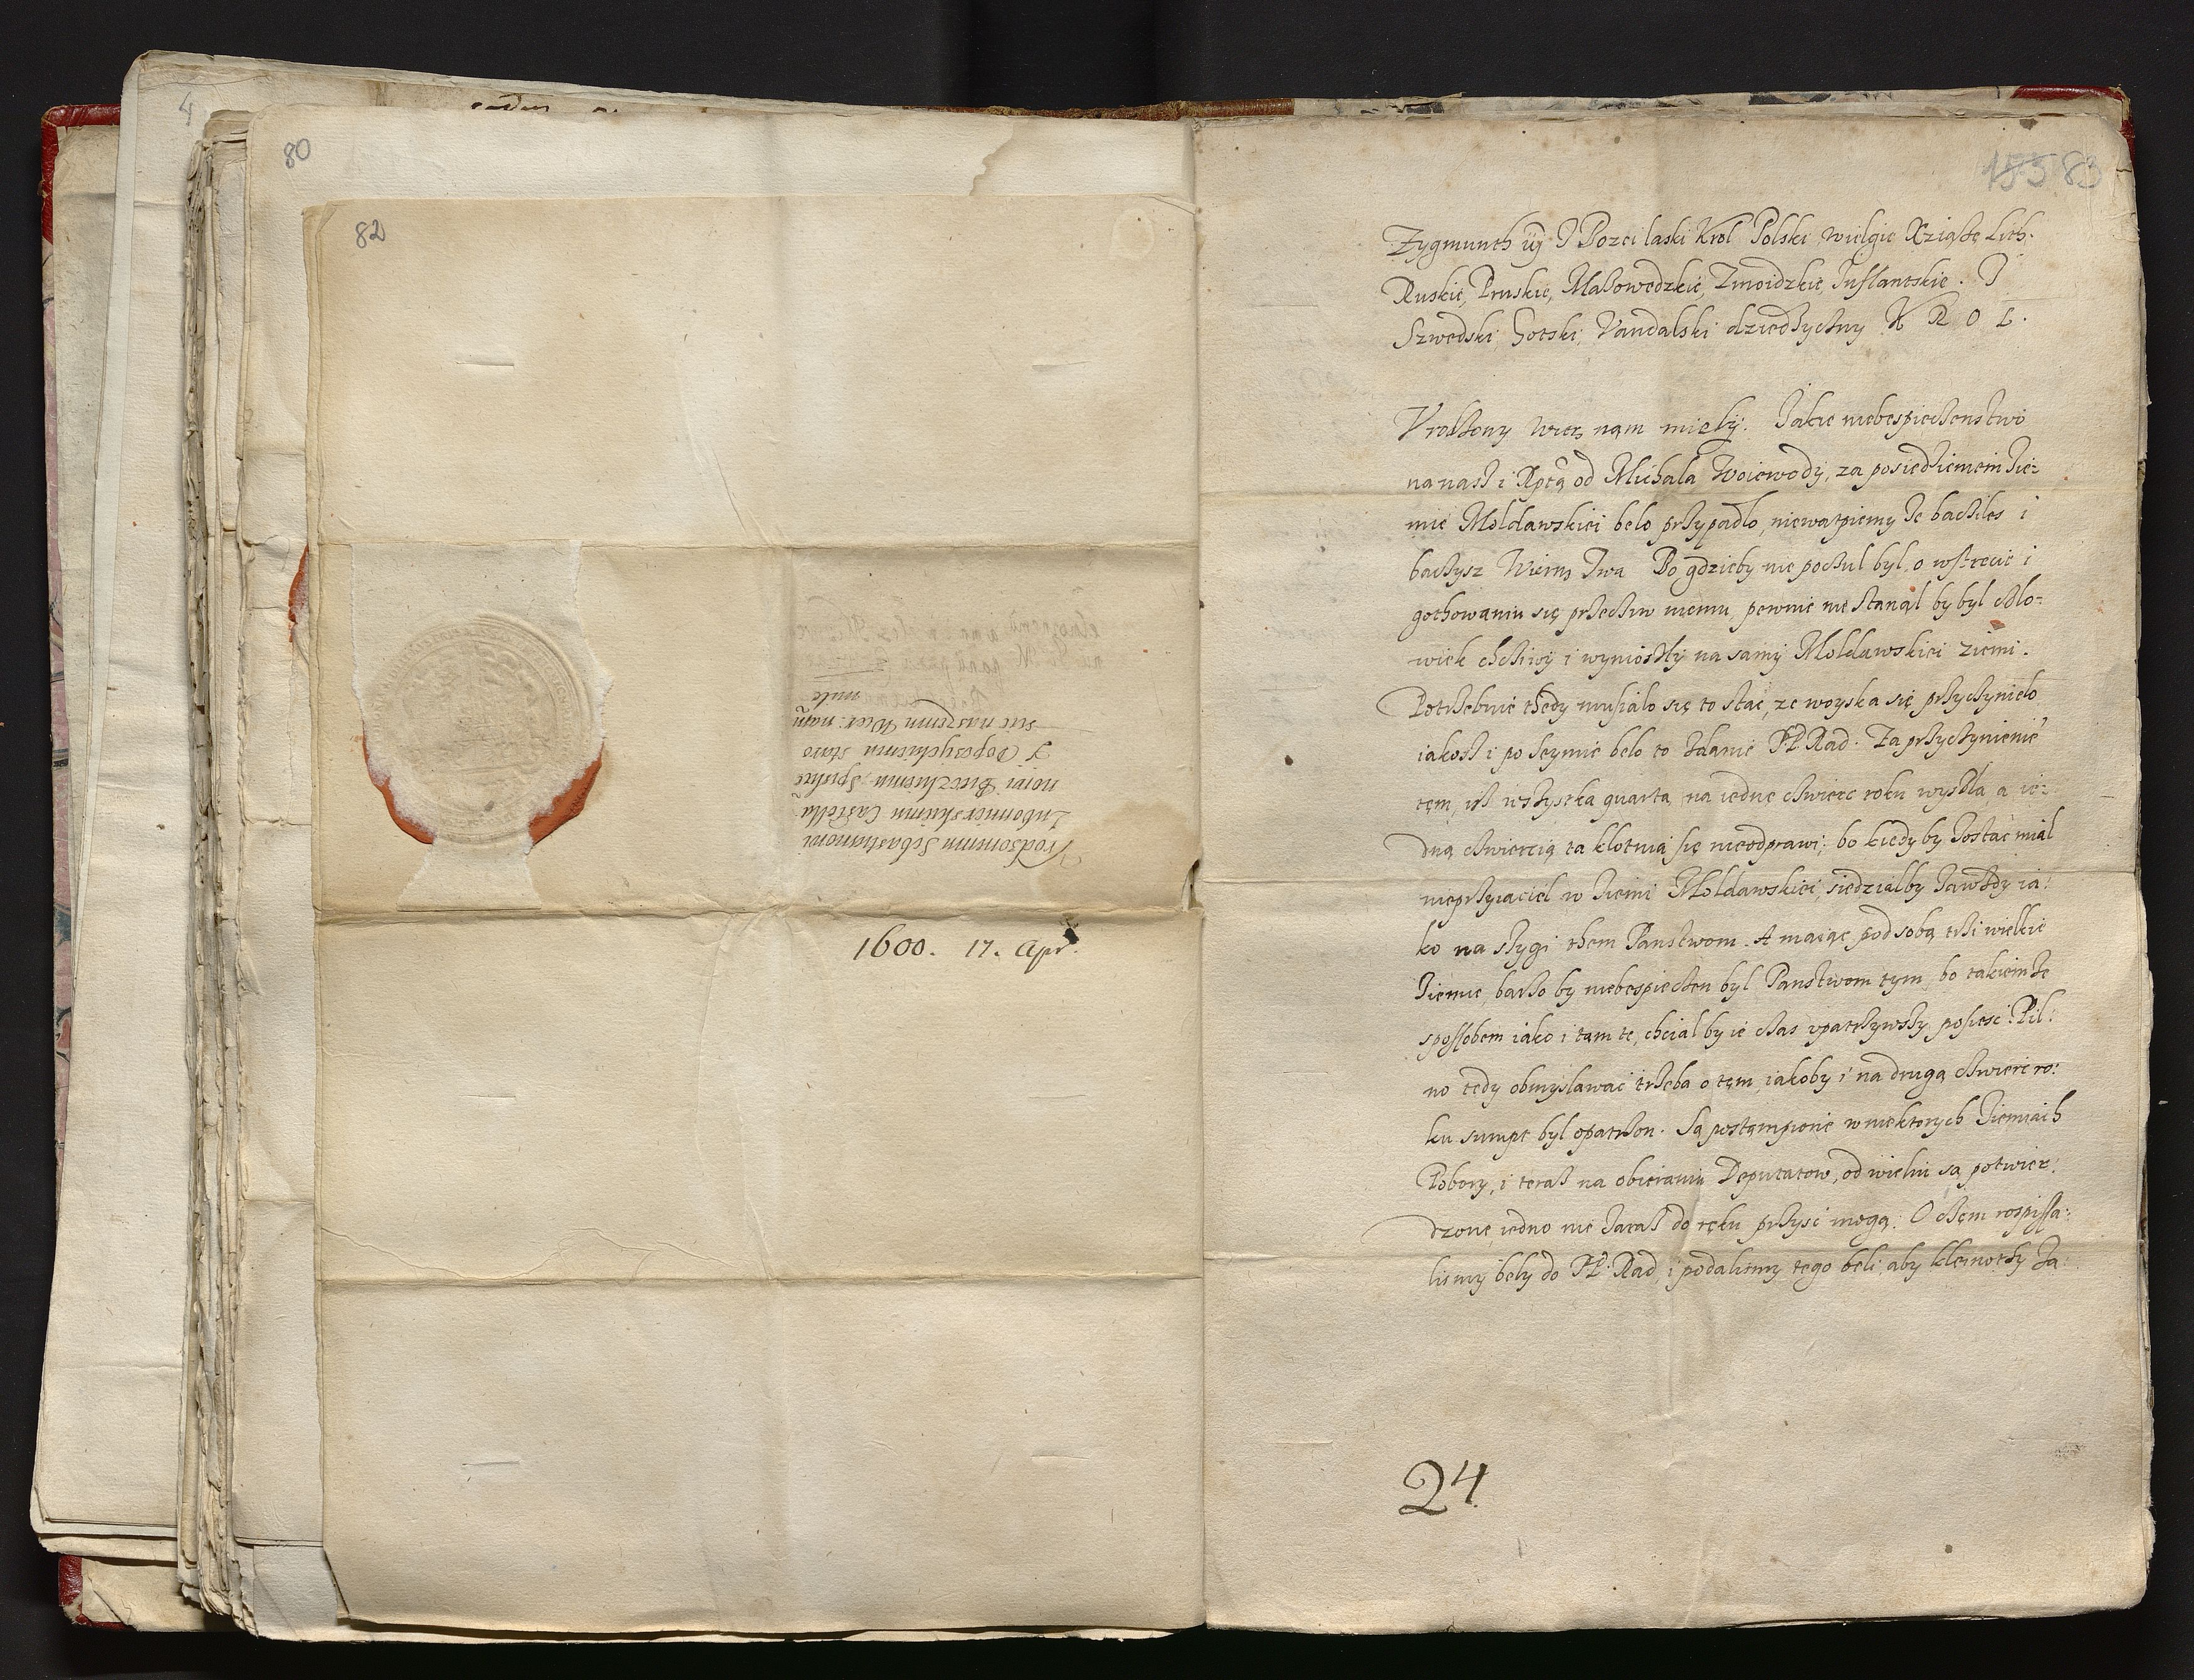 4
80
82
Vrodzonemu Sebastianowi
Lubomierskiemu Castella
nowi Biec̃kiemu, Spiskie
Y Dopczyckiemu staro
ście naszemu Wier: nam
mile
1600. 17. Apr.
155 83
Zygmunth iij Z Bozei laski Krol Polski wielgie Xziąże Lith.
Ruskie, Pruskie, Mazowedzkie, Zmoidzkie, Inflantskie. I
Szwedski, Gotski, Vandalski dziedzyczny K R O L.
Vrodzony wierz nąm mieły. Jakie niebespieczenstwo
na nasz i Rptą od Michala Woiewody, za posiedziemiem zie:
mie Moldawskiei belo przypadlo, niewatpiemy ze baczŁles i
baczysz Wierns Twa Bo gdzieby nie poczul byl o wstręcie i
gothowaniu się przeciw niemu pewnie nie stanąl by byl czlo:
wiek chciwy i wyniosly na samy Moldawskiei ziemi.
Potrzebnie thedy musialo się to stać, ze woyska się przyczynielo
iakosz i po Seymie belo to zdanie PP. Rad. Za przyczynienie
tęm, isz wszystka quarta na iednę czwierc roku wyszla, a ie:
dną czwiercią ta klotnia się nieodprawi; bo kiedy by zostać mial
nieprzyiaciel w ziemi Moldawskiei, siedzialby zawzdy ia:
ko na szyi them Panstwom. A maiąc pod sobą trzi wielkie
ziemie, barzo by niebespieczen byl Panstwom tym, bo takiemze
sposſobem iako i tam te, chcial by ie czas vpatrzywszy posiesc. Pil:
no tedy obmyslawać trzeba o tęm, iakoby i na drugą czwierc ro:
ku sumpt byl opatrzon. Są postąmpione w niektorych ziemiach
Pobory, i terasz na obieraniu Deputatow, od wielu są potwier:
dzone, iedno nie zarasz do ręku przysć mogą. O czem rospissa:
lismy bely do PP. Rad, i podalismy tego beli, aby kleinothy za
24